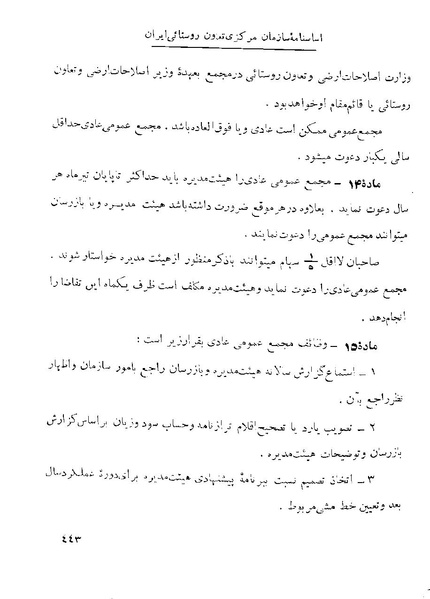 اساسنامهٔ سازمان مرکزی تعاون روستائی ایران
وزارت اصلاحات ارضی و تعاون روستائی در مجمع بعهدهٔ وزیر اصلاحات ارضی و تعاون
روستائی یا قائم‌مقام او خواهد بود .
مجمع عمومی ممکن است عادی و یا فوق‌العاده باشد . مجمع عمومی عادی حداقل
سالی یکبار دعوت میشود .
مادهٔ ۱۴ – مجمع عمومی عادی را هیئت مدیره باید حداکثر تا پایان تیرماه هر
سال دعوت نماید . بعلاوه در هر موقع ضرورت داشته باشد هیئت مدیره و یا بازرسان
میتوانند مجمع عمومی را دعوت نمایند .
صاحبان لااقل ۱/۵ سهام میتوانند با ذکر منظور از هیئت مدیره خواستار شوند .
مجمع عمومی عادی را دعوت نماید و هیئت مدیره مکلف است ظرف یکماه این تقاضا را
انجام دهد .
مادهٔ ۱۵ – وظائف مجمع عمومی عادی بقرار زیر است :
۱ – استماع گزارش سالانه هیئت مدیره و بازرسان راجع بامور سازمان و اظهار
نظر راجع بآن .
۲ – تصویب یا رد یا تصحیح اقلام ترازنامه و حساب سود و زیان بر اساس گزارش
بازرسان و توضیحات هیئت مدیره .
۳ – اتخاذ تصمیم نسبت ببرنامهٔ پیشنهادی هیئت مدیره برای دورهٔ عملکرد سال
بعد و تعیین خط مشی مربوط .
۴۴۳